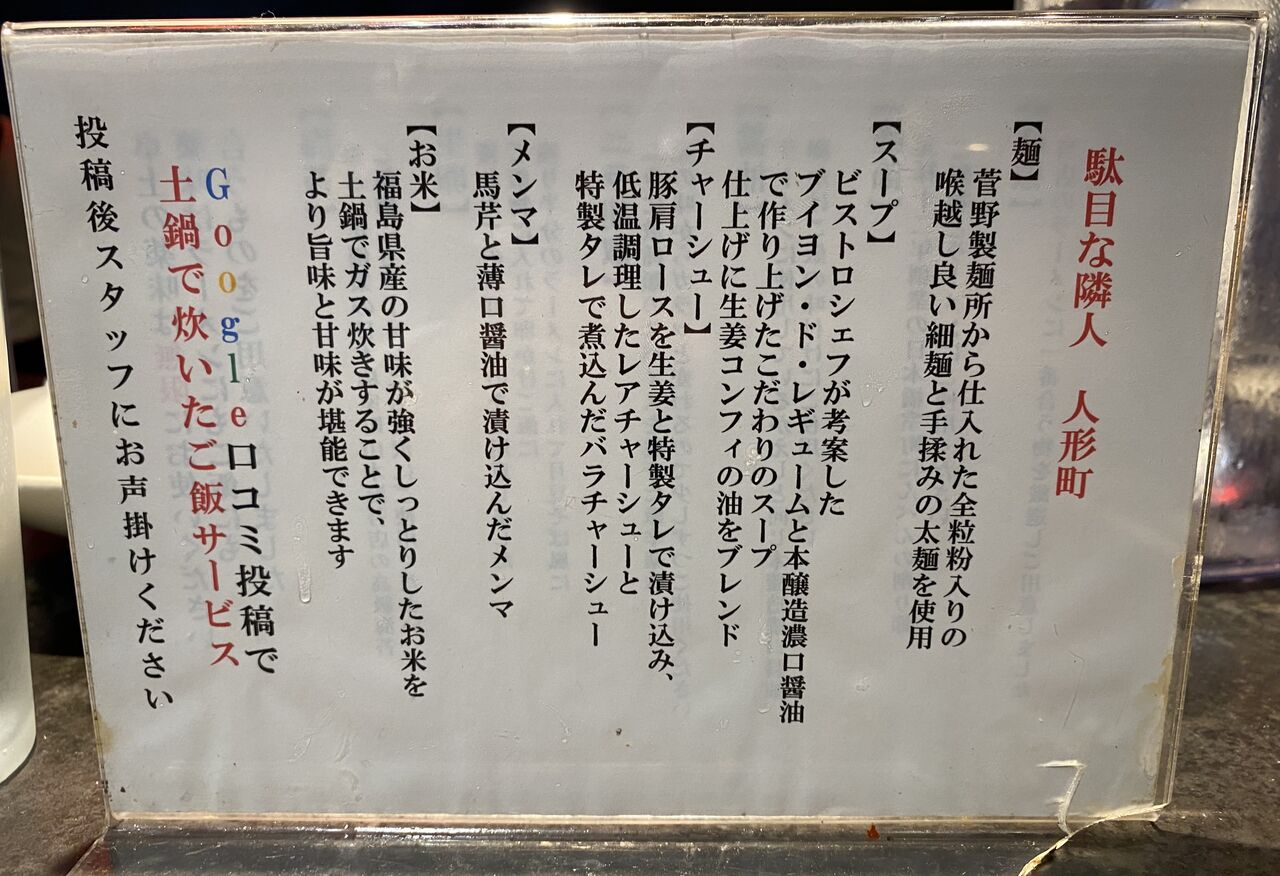 駄目な隣人　人形町
【麺】
菅野製麺所から仕入れた全粒粉入りの
喉越し良い細麺と手揉みの太麺を使用
【スープ】
ビストロシェフが考案した
ブイヨン・ド・レギュームと本醸造濃口醤油
で作り上げたこだわりのスープ
仕上げに生姜コンフィの油をブレンド
【チャーシュー】
豚肩ロースを生姜と特製タレで漬け込み、
低温調理したレアチャーシューと
特製タレで煮込んだバラチャーシュー
【メンマ】
馬芹と薄口醤油で漬け込んだメンマ
【お米】
福島県産の甘味が強くしっとりしたお米を
土鍋でガス炊きすることで、
より旨味と甘味が堪能できます
Google口コミ投稿で
土鍋で炊いたご飯サービス
投稿後スタッフにお声掛けください